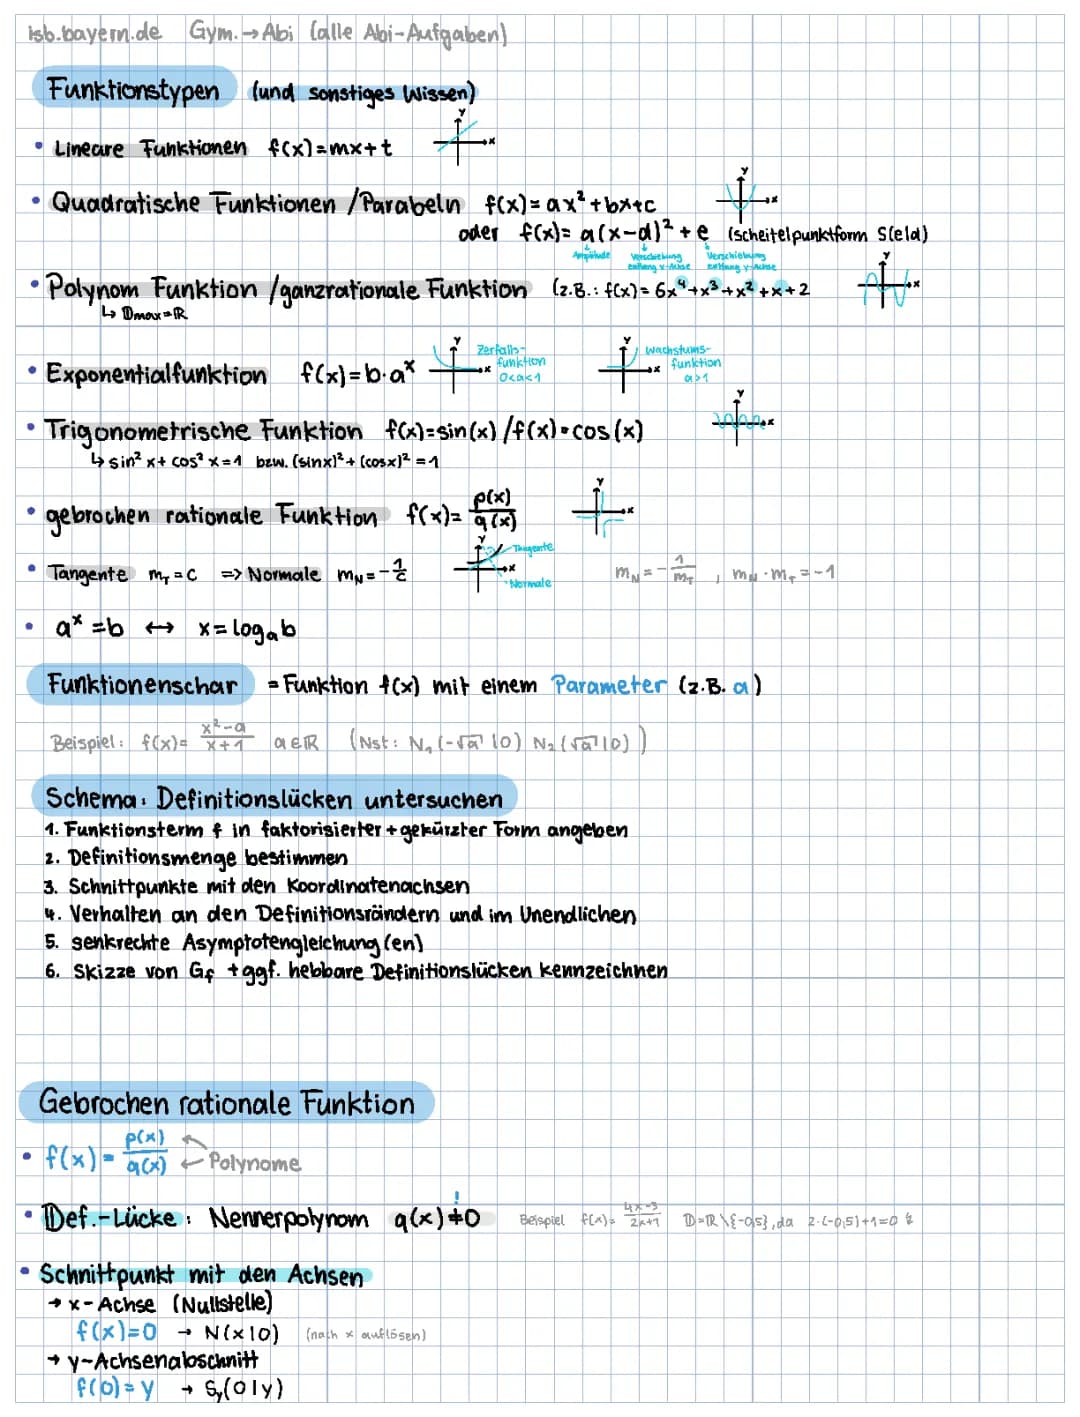 isb.bayern.de Gym.→Abi (alle Abi-Aufgaben)
Funktionstypen (und sonstiges Wissen)
• Lineare Funktionen f(x)=mx+t
y
x
• Quadratische Funktionen /Parabeln f(x)=ax²+bx+c
y
x
oder f(x)= a(x-d)²+e (Scheitelpunktform S(e|d)
Amplitude Verschiebung entlang x-Achse Verschiebung entlang y-Achse
• Polynom Funktion /ganzrationale Funktion (z.B.: f(x)= 6x⁴+x³+x²+x+2
y
x
↳ 𝔻max=ℝ
• Exponentialfunktion f(x)=b·aˣ
y
x
Zerfalls-
funktion
0<a<1
y
x
Wachstums-
funktion
a>1
• Trigonometrische Funktion f(x)=sin(x) /f(x)=cos(x)
y
x
↳ sin²x+cos²x=1 bzw. (sinx)²+(cosx)²=1
• gebrochen rationale Funktion f(x)= p(x)/q(x)
y
x
• Tangente m_T=c => Normale m_N=-1/c
y
x
Tangente
Normale
m_N=-1/m_T , m_N·m_T=-1
• aˣ=b ↔ x=logₐb
Funktionenschar = Funktion f(x) mit einem Parameter (z.B. a)
Beispiel: f(x)= x²-a/x+1 a∈ℝ (Nst: N₁(-√a|0) N₂(√a|0))
Schema: Definitionslücken untersuchen
1. Funktionsterm f in faktorisierter+gekürzter Form angeben
2. Definitionsmenge bestimmen
3. Schnittpunkte mit den Koordinatenachsen
4. Verhalten an den Definitionsrändern und im Unendlichen
5. senkrechte Asymptotengleichung(en)
6. Skizze von G_f +ggf. hebbare Definitionslücken kennzeichnen
Gebrochen rationale Funktion
• f(x)= p(x)/q(x) ← Polynome
• 𝔻ef.-Lücke: Nennerpolynom q(x)≠0 ! Beispiel f(x)= 4x-3/2x+1 𝔻=ℝ\{-0,5}, da 2·(-0,5)+1=0 ↯
• Schnittpunkt mit den Achsen
→ x-Achse (Nullstelle)
f(x)=0 → N(x|0) (nach x auflösen)
→ y-Achsenabschnitt
f(0)=y → S_y(0|y)